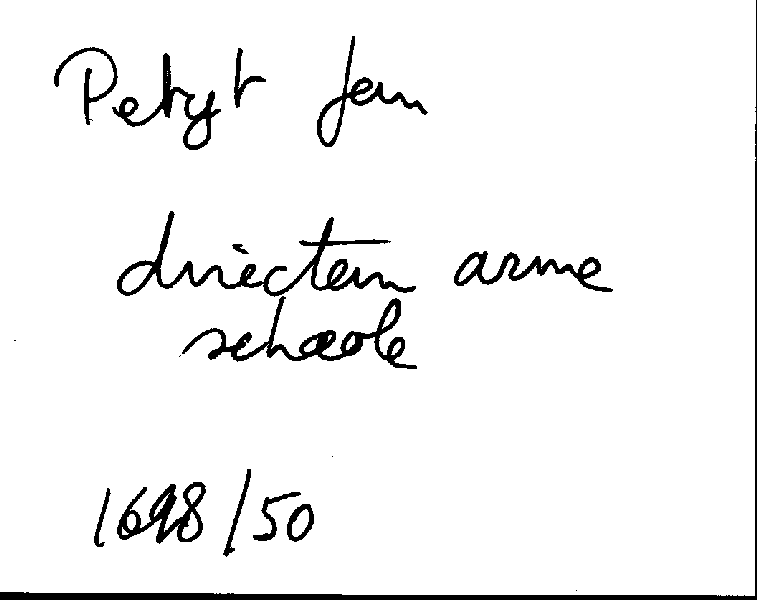 Petyt Jan
directeur arme
schoole
1698/50